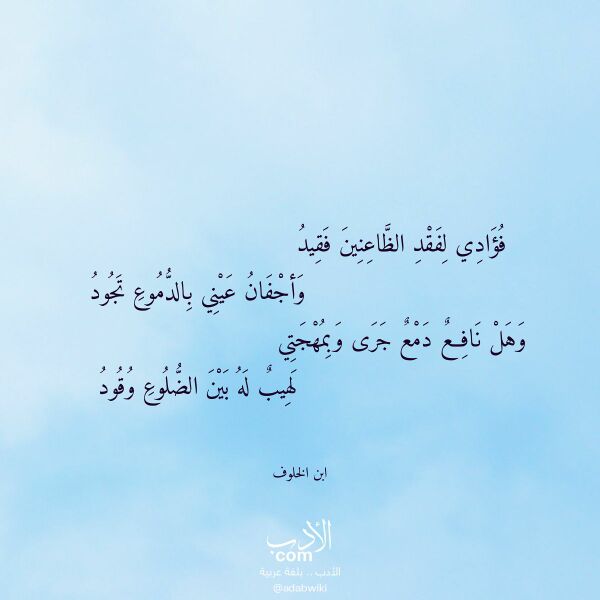 فُؤَادِي لِفَقْدِ الظَّاعِنِينَ فَقِيدُ
وَأجْفَانُ عَيْنِي بِالدُّمُوعِ تَجُودُ
وَهَلْ نَافِعٌ دَمْعٌ جَرَى وَبِمُهْجَتِي
لَهِيبٌ لَهُ بَيْنَ الضُّلُوعِ وُقُودُ
ابن الخلوف
الأدب
.com
الأدب .. بلغة عربية
@adabwiki